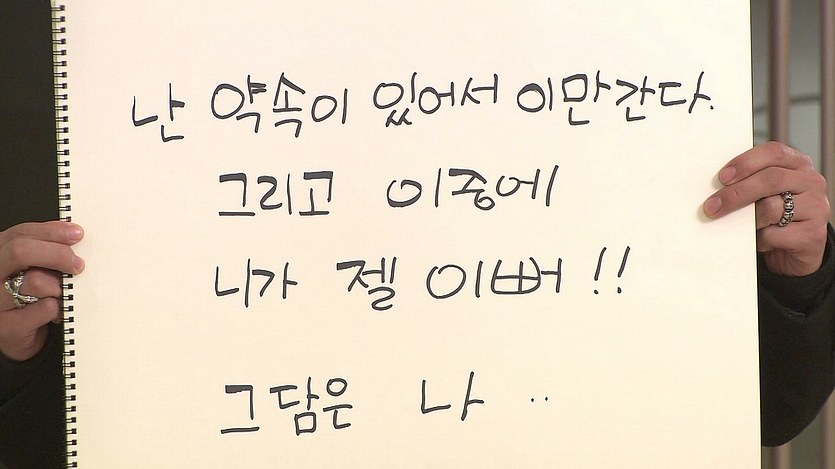 난 약속이 있어서 이만간다.
그리고 이중에
니가 젤 이뻐!!
그담은 나..